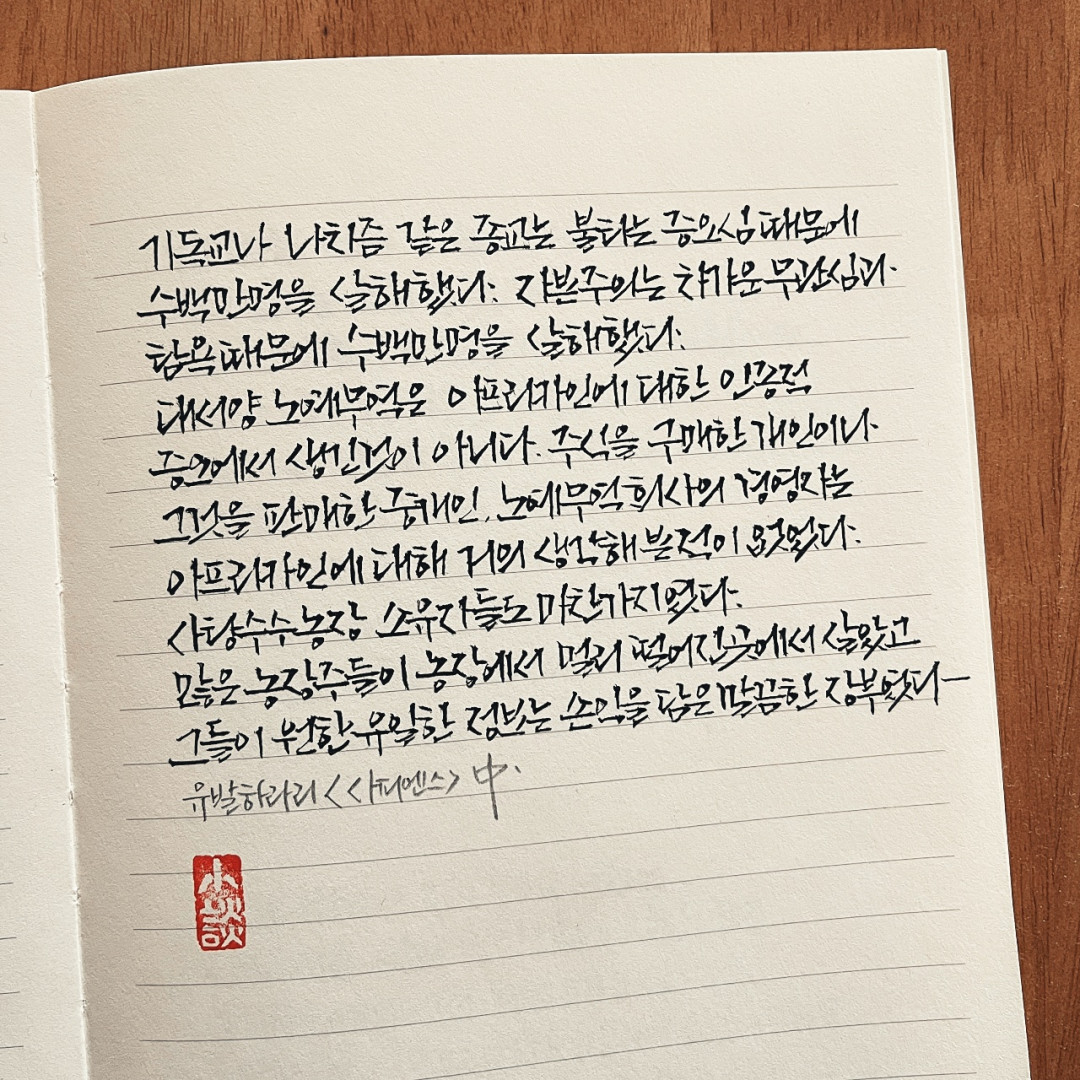 기독교나 나치즘 같은 종교는 불타는 증오심 때문에
수백만명을 살해했다. 자본주의는 차가운 무관심과
탐욕때문에 수백만명을 살해했다.
대서양 노예무역은 아프리카인에 대한 인종적
증오에서 생긴것이 아니다. 주식을 구매한 개인이나
그것을 판매한 중개인, 노예무역 회사의 경영자는
아프리카인에 대해 거의 생각해본적이 없었다.
사탕수수농장 소유자들도 마찬가지였다.
많은 농장주들이 농장에서 멀리 떨어진곳에서 살았고
그들이 원한 유일한 정보는 손익을 담은 말끔한 장부였다—
유발하라리 <<사피엔스> 中.
小談